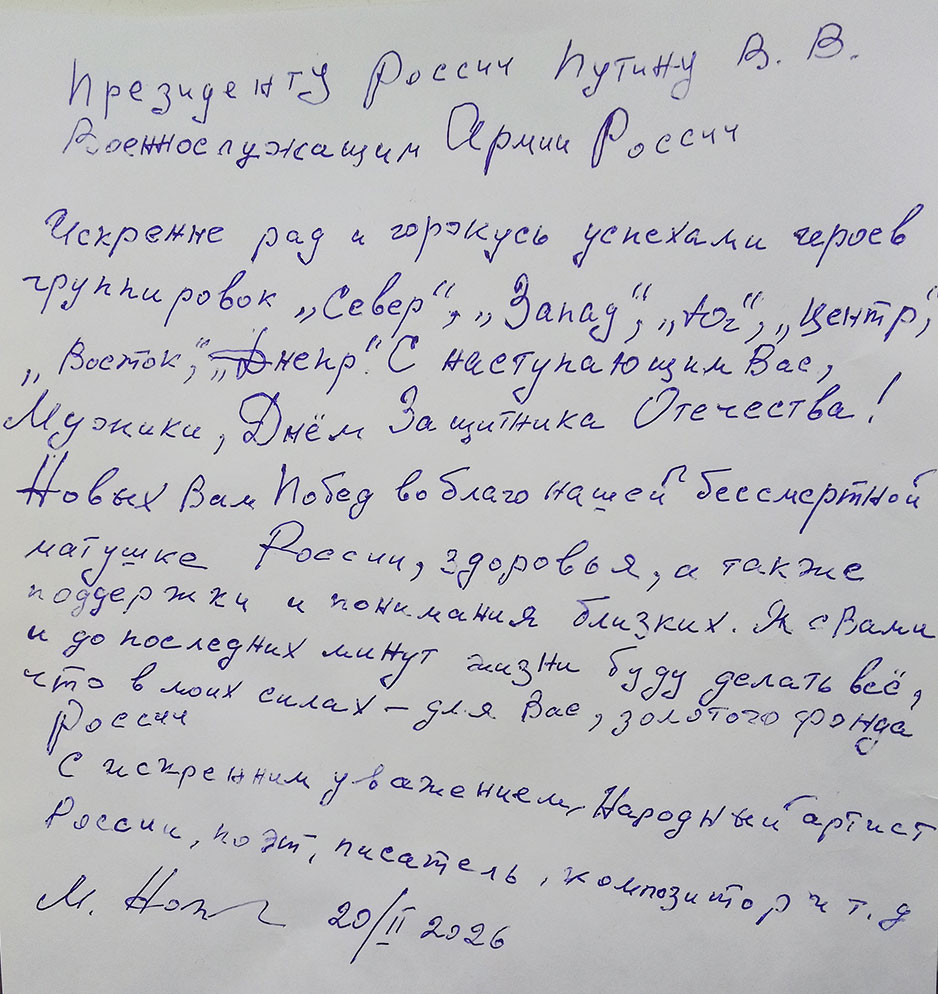 Президенту России Путину В. В.
Военнослужащим Армии России
Искренне рад и горжусь успехами героев
группировок „Север“, „Запад“, „Юг“, „Центр“,
„Восток“, „Днепр“. С наступающим Вас,
Мужики, Днём Защитника Отечества!
Новых Вам Побед во благо нашей бессмертной
матушке России, здоровья, а также
поддержки и понимания близких. Я с Вами
и до последних минут жизни буду делать всё,
что в моих силах – для Вас, золотого фонда
России
С искренним уважением, Народный артист
России, поэт, писатель, композитор и т. д
М. 20/II 2026